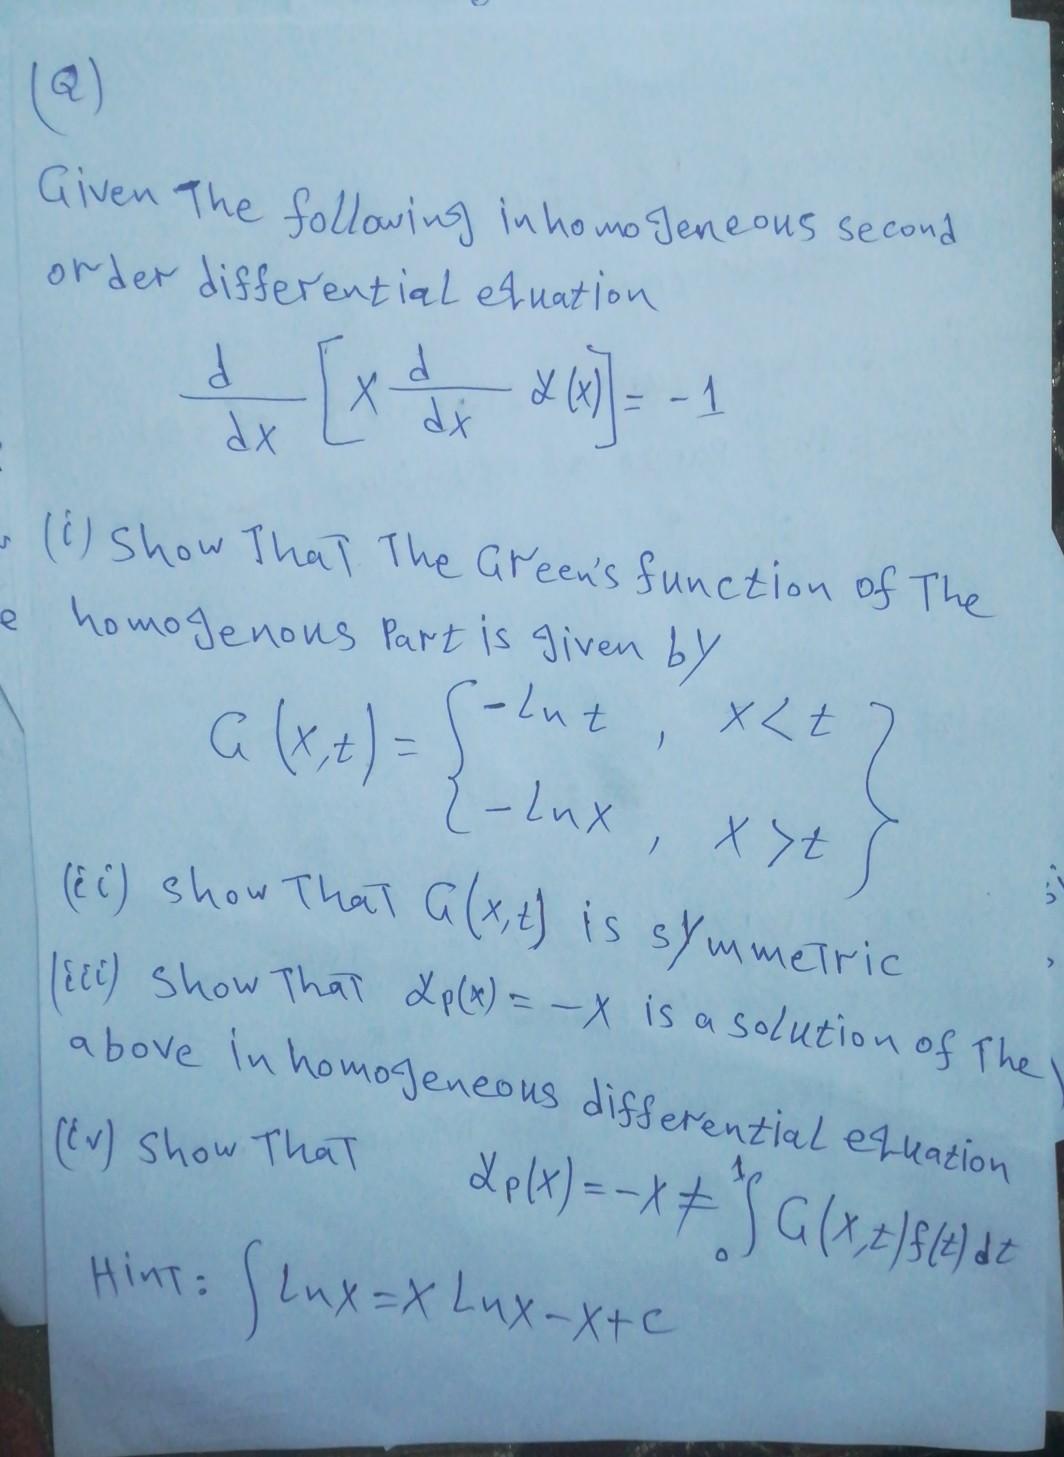 (Q)
Given The following inhomogeneous second
order differential equation
d/dx [x d/dx y(x)] = -1
(i) Show That The Green's function of The
homogenous Part is given by
G(x,t) = { -Ln t , x < t
-Ln x , x > t }
(ii) show That G(x,t) is symmetric
(iii) Show That yp(x) = -x is a solution of The
above inhomogeneous differential equation
(iv) Show That yp(x) = -x ≠ ₀∫¹ G(x,t) f(t) dt
Hint: ∫ Lnx = x Lnx - x + c